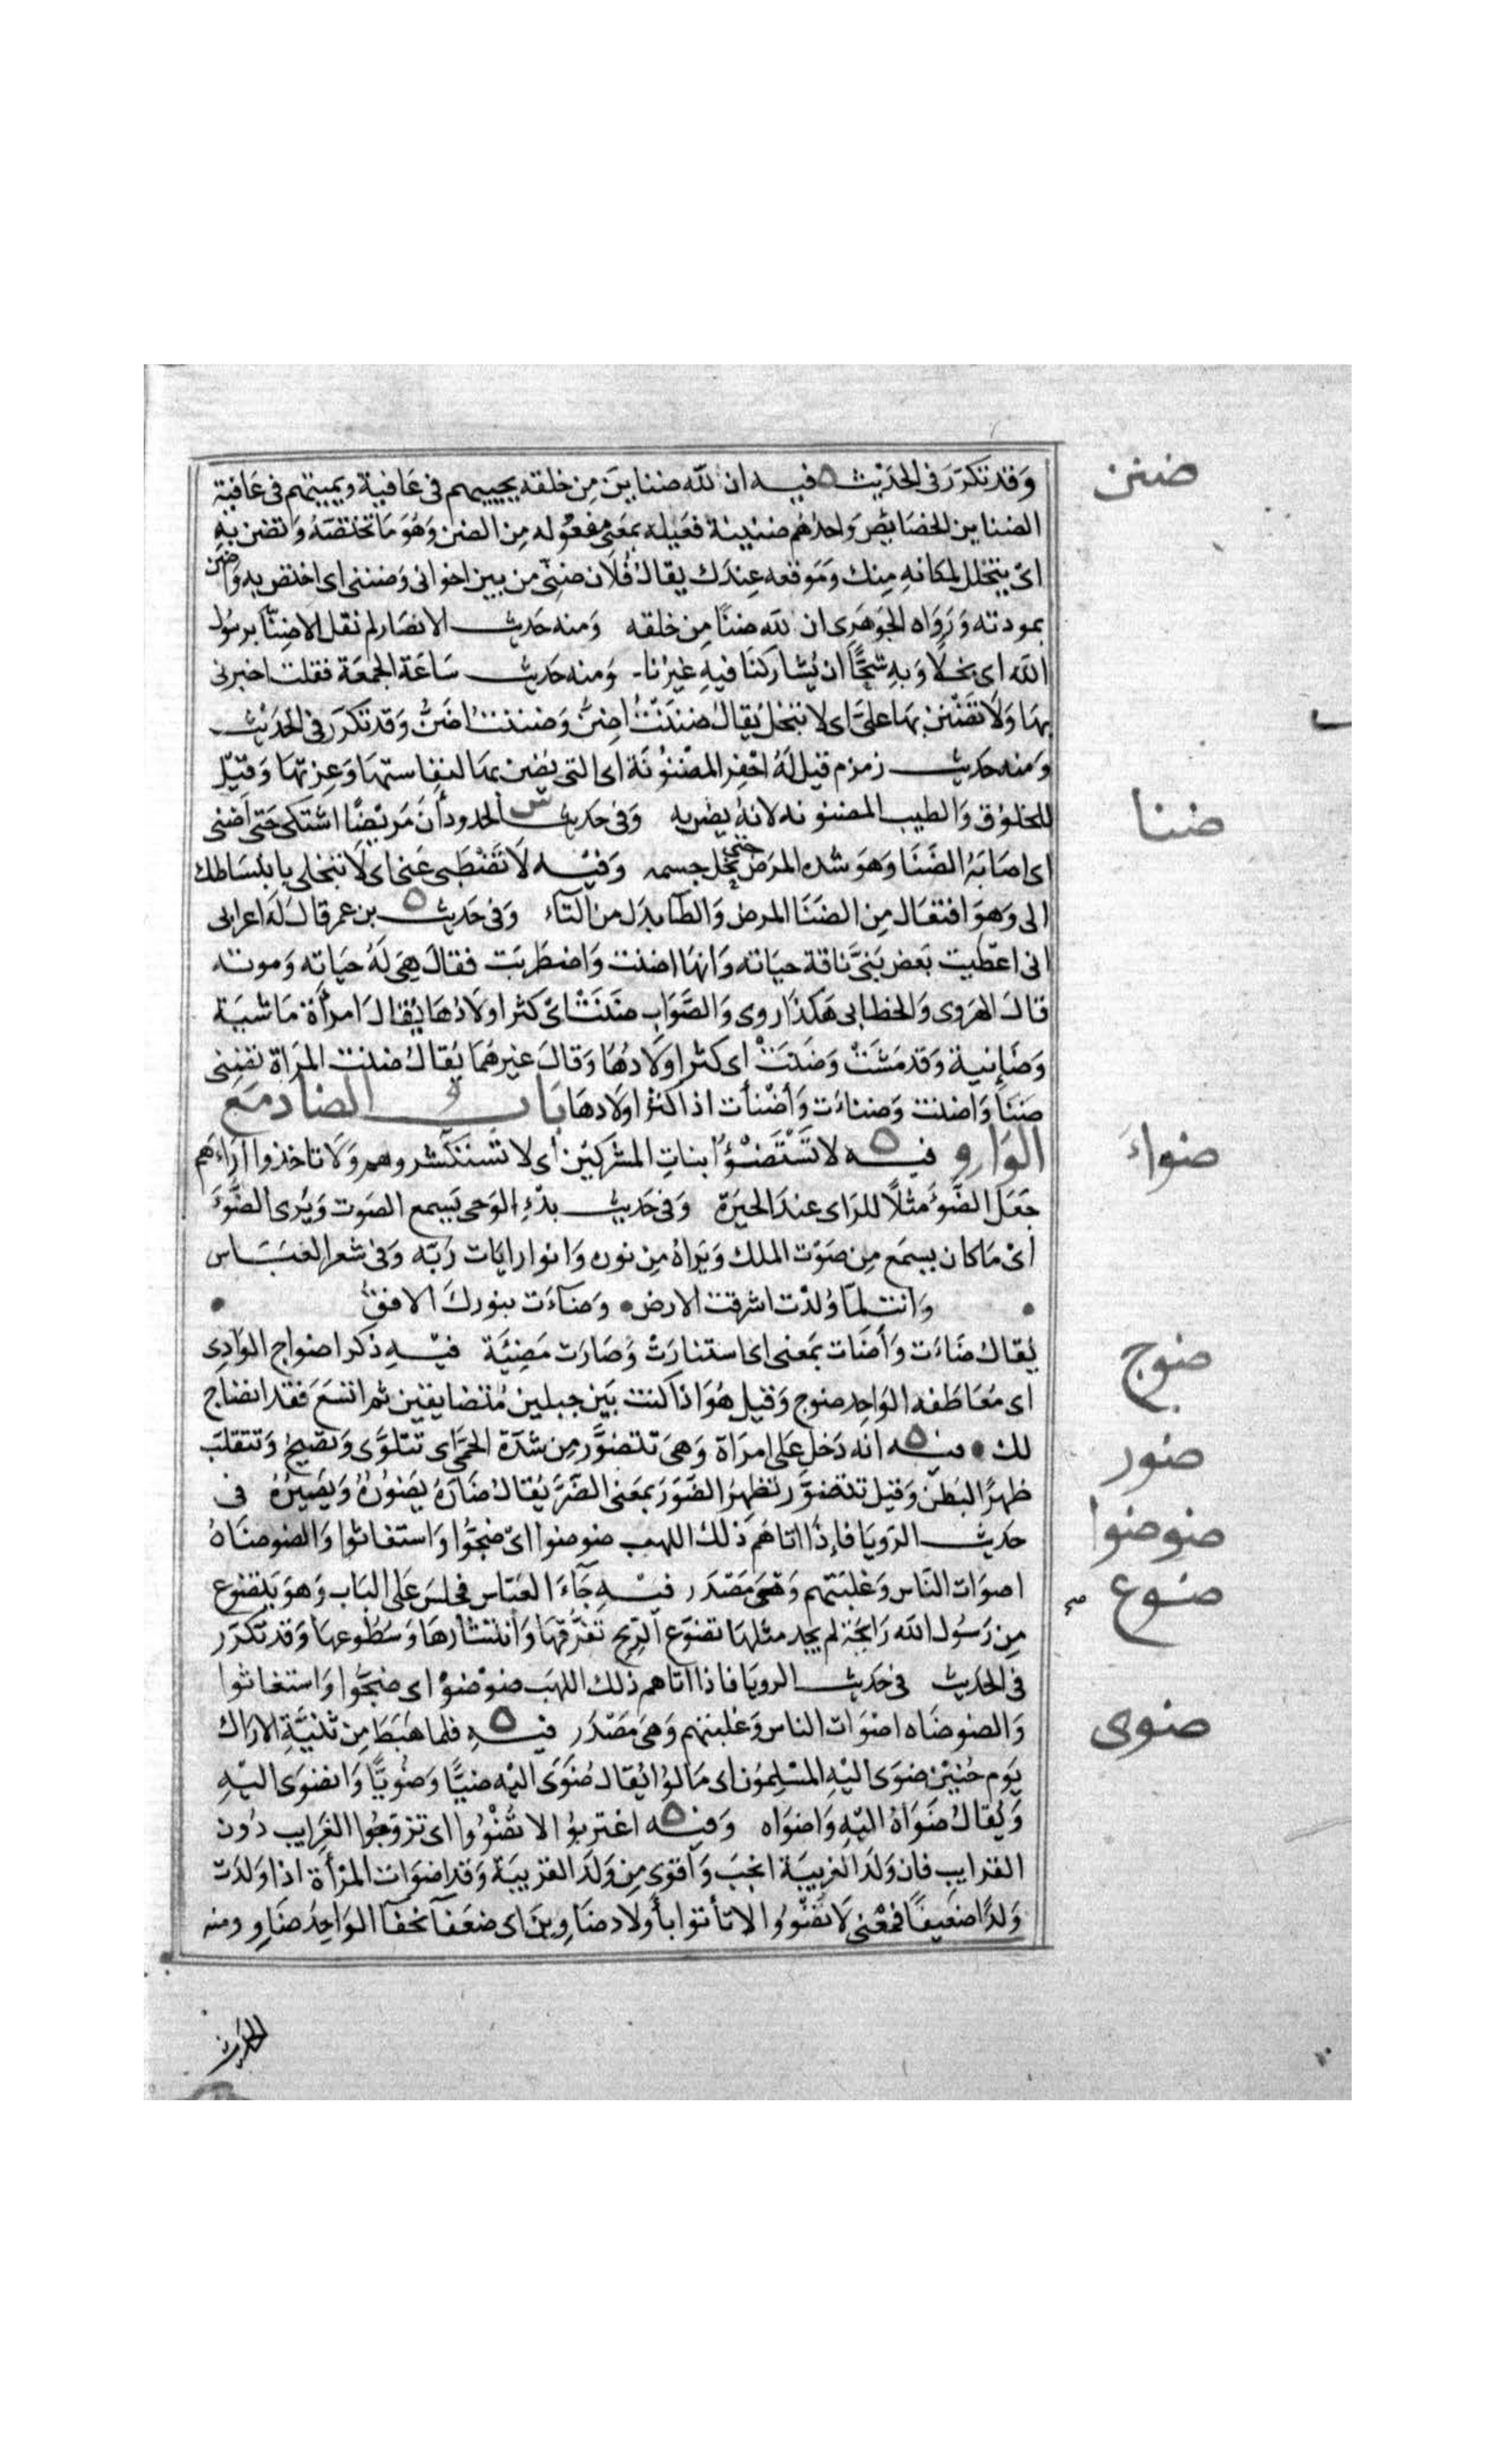 وَقد تكرّر فى الحَدِيْث ه فيه ان لله ضناين مِن خلقه يحييهم فى عَافية ويميتهم فى عَافية
ضنن
الضناين الخصَايص وَاحدهُم ضنينة فعيله بمَعنى مفعُوله مِن الضن وَهُوَ مَا تختصّهُ وَتضن بهِ
اىْ يتخلل لمكانهِ مِنك وَمَوقعه عِندَك يقال فُلان ضنِّى من بين اخوانى وَضننى اى اختص به وَاضن
بمودته وَرَوَاه الجَوهَرى ان لله ضننًا مِن خلقه وَمنه حَديث الانصَار لم نقل الا ضِنّا برسُول
الله اى بخلًا وَبهِ شحًّا ان يُشاركنَا فيهِ غيرُنا وَمنه حَديث سَاعَة الجمعَة فقلت اخبرنى
بهَا وَلَا تَضْنن بهَا علىّ اى لا تبخل يُقالُ ضنَنْتُ اضِنّ وَضننتُ اضَنُّ وَقد تكرّر فى الحَديْث
وَمنه حَديث زمزم قيل لَهُ احفِر المضْنُوْنَة اى التى يُضن بهَا لنفاستهَا وَعِزتهَا وَقيْل
للخلوُق وَالطيب المضنونه لانهُ يضن به وَفى حَديث س الحدود أنّ مَريْضًا اشتكى حَتى اضنى
ضنا
اى اصَابَهُ الضَنَا وَهوَ شده المرَض حتى نحل جسمه وَفيْه لَا تَضْطَنى عَنى اى لَا تبخلى بانبسَاطك
الى وَهوَ افتعَال مِن الضَنَا المرض وَالطآ بدَل من التآء وَفى حَديث ه بن عمر قالَ لَهَ اعرابى
انى اعطيت بَعض بَنىَّ ناقة حيَاته وَانهَا اضنت وَاضطرَبَت فقال هِىَ لَهُ حيَاته وَموته
قالَ الهرَوى وَالخطابى هَكذا روى وَالصَّوَاب ضَنَتْ اىْ كثر اولَادُهَا يُقالَ امرَأة مَاشيَة
وَضَانِية وَقد مَشَتْ وَضَنَتْ اى كثر اولَادُهَا وَقالَ غيرهُمَا يُقالُ ضنت المرَاة تضنى
ضنَىً وَاضنت وَضنات وَأضْنأت اذا كثر اولادهَا بَاب الضاد مَع
الوَاو فيه ه لا تَسْتَضيْئُوا بنارِ المشركيْن أى لا تستشيروهم وَلَا تاخذوا ارَاءهم
ضواءَ
جَعَل الضَّوءَ مثلًا للرَاى عندَ الحيَرَة وَفى حَديث بدْءِ الوَحى يَسمع الصَوت وَيَرى الضَّوْءَ
أىْ مَا كان يسمَع مِن صَوْت الملك وَيَراهُ مِن نوره وَانوار ايَات رَبّه وَفى شعر العَبَّاس
• وَانت لمّا وُلدْت اشرقت الارض • وَضآءَت بنوركَ الافق •
يُقال ضَاءَت وَأضَات بمَعنى اى استنارَتْ وَصَارَت مَضِيَّة فيْهِ ذكر اضواج الوَادِى
ضوج
اى مُعَاطفه الوَاحِد ضوج وَقيل هُوَ اذا كنت بَين جبلين مُتضايقين ثم اتسَعَ فقد انضاج
لك • فيه ه انه دَخل عَلى امرَاة وَهىَ تتضوَّر مِن شدّة الحمَّى اى تتلوَّى وَتصْيحُ وَتتقلبّ
ضور
ظهرًا لبَطن وَقيل تتضوَّر تظهرُ الضَّوَرَ بمَعنى الضَّرّ يُقالُ ضَارَهُ يَضوُرُهُ وَيَضيْرُهُ فى
حَديث الرّويَا فاِذَا اتاهُم ذلك اللهب ضوضوا اىْ ضجّوُا وَاستغاثوا وَالضوضَاهُ
ضوضوا
اصوَات النَاس وَغلبَتهم وَهىَ مَصْدَر فيْهِ جَآءَ العبّاس فجلسَ عَلى البَاب وَهوَ يَتضوع
ضوع
مِن رَسُول الله رَايحَة لم يجد مثلهَا تضوّع الرّيح تفرُّقهَا وَانتشارهَا وَسُطُوعهَا وَقد تكرّر
فى الحَديث فى حَديث الرويَا فاذا اتاهم ذلك اللهَب ضوْضوْا اى ضجّوا وَاستغاثوا
وَالضوضَاه اصْوَات الناس وَغلبتهم وَهىَ مَصْدَر فيهِ ه فلما هَبَطَ مِن ثنيَّةِ الارَاك
ضوى
يَوم حُنيْن ضوَى اليْهِ المسْلِمُون اى مَالوُا يُقال ضَوَى اليْه ضيًّا وَضُويًّا وَانضوَى اليْهِ
وَيُقالُ ضوَاهُ اليْهِ وَاضوَاه وَفيْه ه اغتربوُا لا تُضْوُوا اى تزوّجُوا الغَرايب دوُن
القرايب فان وَلدَ الغَريبَة انجبَ وَأقوى مِن وَلَد القريبَة وَقد اضوَات المرْأة اذا وَلدَت
وَلدًا ضعَيفًا فمعْنى لَا تُضْوُوا لا تأتوا بأولَاد ضَاوِين اى ضعَفآ نحفآ الوَاحِدُ ضَاوٍ ومنه
الحديث